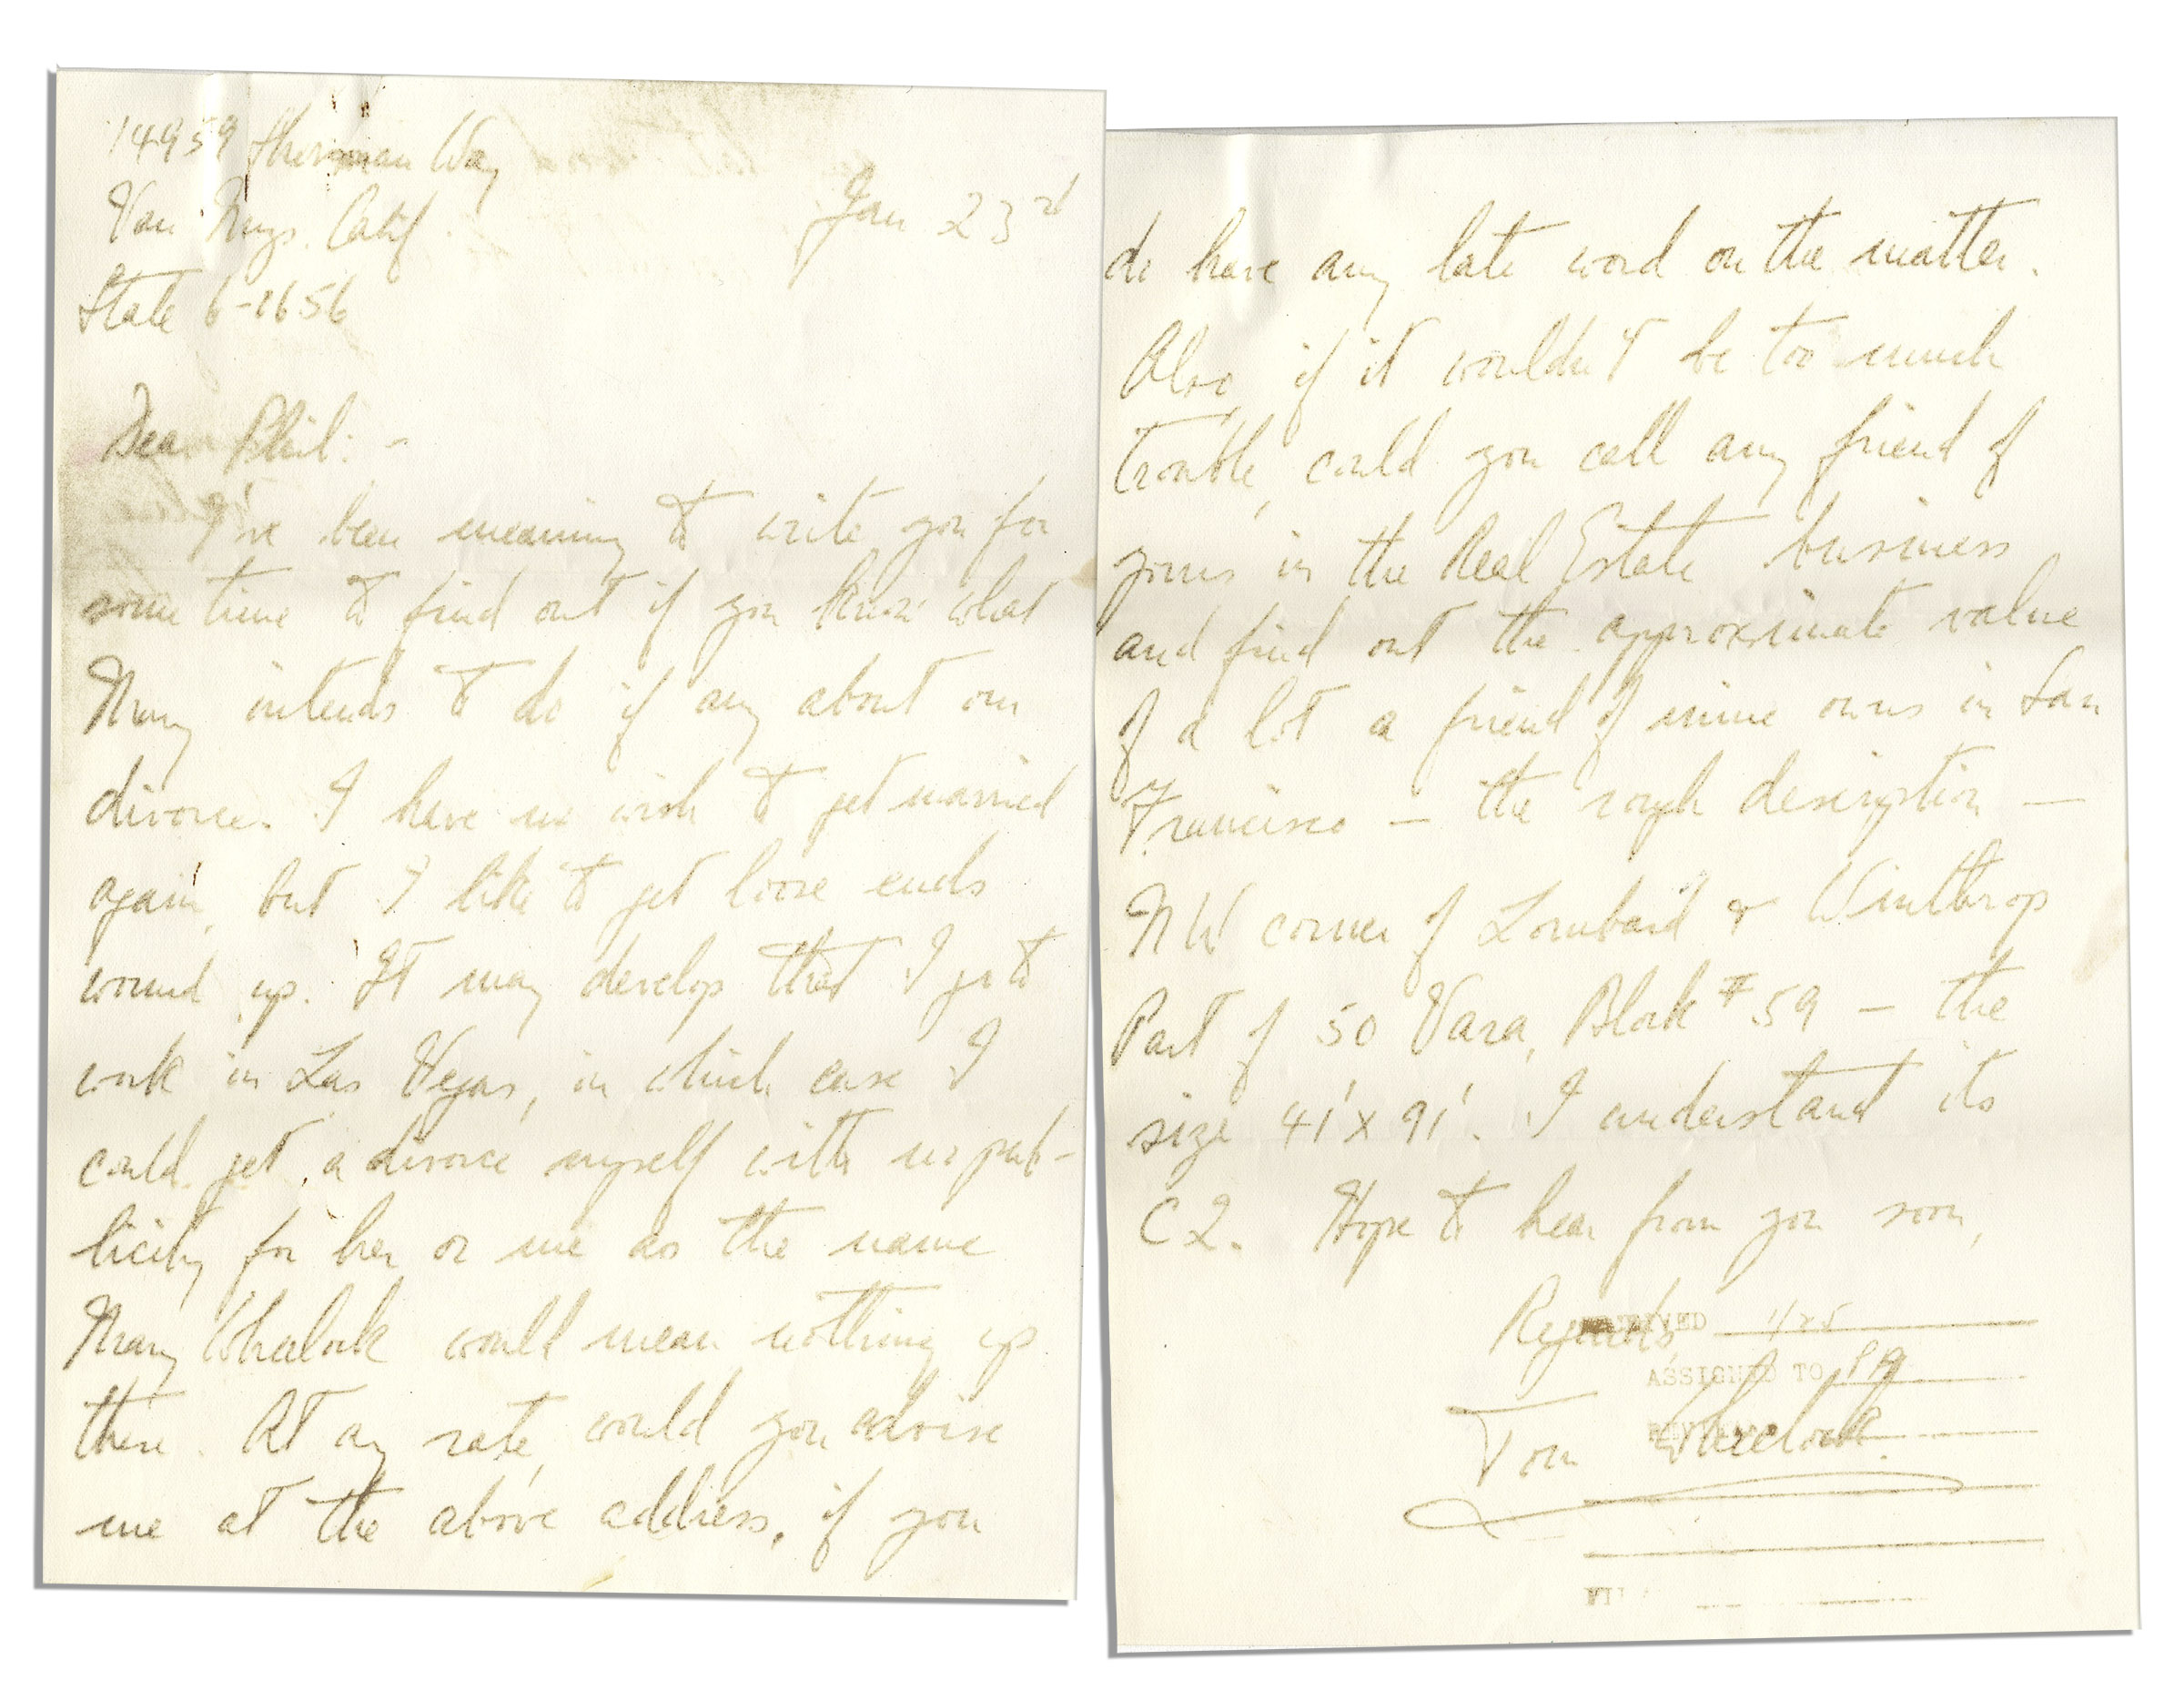 14959 Sherman Way
Van Nuys. Calif.
Jan 23rd
State 6-1656
Dear Phil: -
I've been meaning to write you for
some time to find out if you know what
Mary intends to do if any about our
divorce. I have no wish to get married
again, but I like to get loose ends
wound up. It may develop that I go to
work in Las Vegas, in which case I
could get a divorce myself with no pub-
licity for her or me as the name
Mary Wheelock would mean nothing up
there. At any rate, would you advise
me at the above address, if you
do have any late word on the matter.
Also, if it wouldn't be too much
trouble, could you call any friend of
yours in the Real Estate business
and find out the approximate value
of a lot a friend of mine owns in San
Francisco — the rough description —
NW corner of Lombard & Winthrop
Part of 50 Vara, Block #59 — the
size 41' x 91'. I understand its
C2. Hope to hear from you soon,
Regards,
RECEIVED
ASSIGNED TO
Tom Wheelock